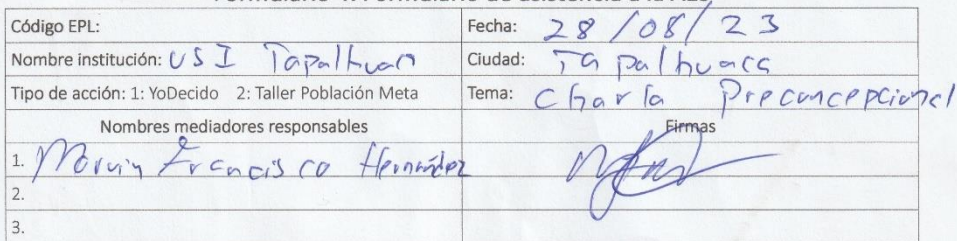 Código EPL:
Fecha: 28/08/23
Nombre institución: USI Tapalhuan
Ciudad: Tapalhuaca
Tipo de acción: 1: YoDecido 2: Taller Población Meta
Tema: Charla Preconcepcional
Nombres mediadores responsables
Firmas
1. Francisco Hernández
2.
3.